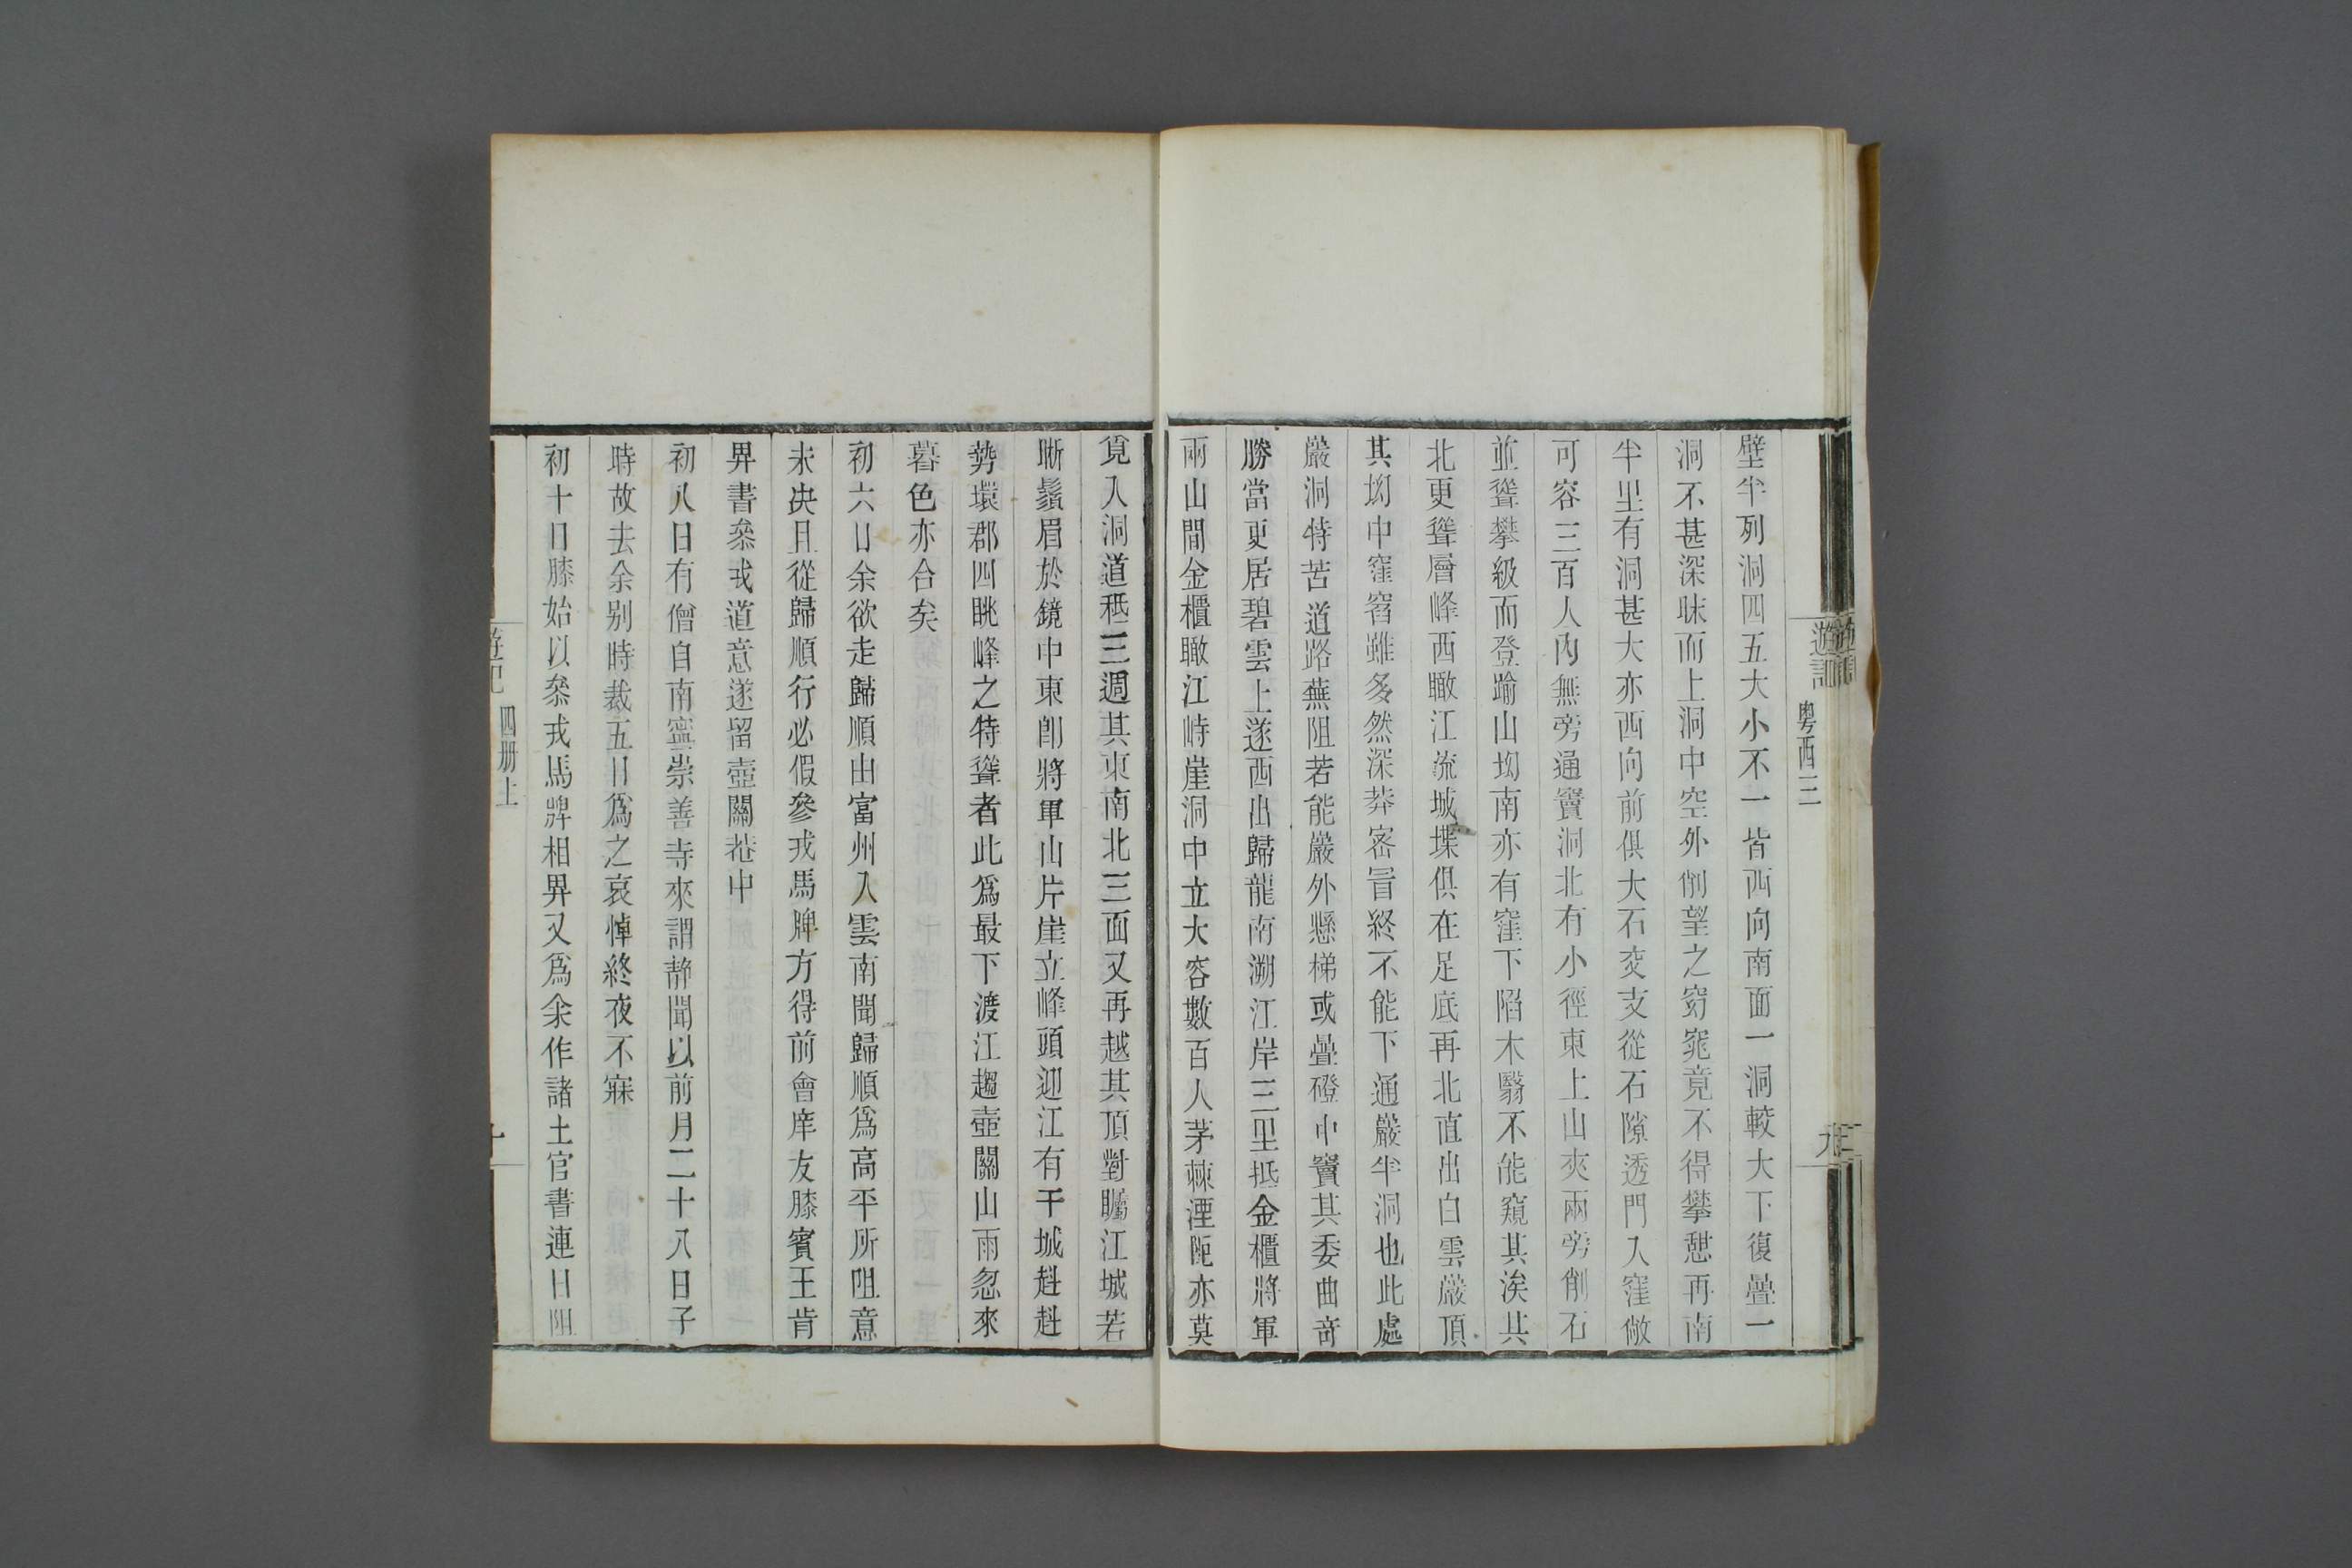 粤西三
壁半列洞四五大小不一皆西向南面一洞較大下復疊一
洞不甚深昧而上洞中空外削望之窈窕竟不得攀憇再南
半里有洞甚大亦西向前俱大石交支從石隙透門入窪敞
可容三百人內無旁通竇洞北有小徑東上山夾兩旁削石
並聳攀級而登踰山坳南亦有窪下陷木翳不能窺其涘其
北更聳層峰西瞰江流城堞俱在足底再北直出白雲巖頂
其坳中窪窞雖多然深莽密罯終不能下通巖半洞也此處
巖洞特苦道路蕪阻若能巖外懸梯或疊磴中竇其委曲奇
勝當更居碧雲上遂西出歸龍南溯江岸三里抵金櫃將軍
兩山間金櫃瞰江峙崖洞中立大容數百人茅棘湮阨亦莫
覓入洞道秪三週其東南北三面又再越其頂對矚江城若
晰鬚眉於鏡中東卽將軍山片崖立峰頭迎江有干城赳赳
勢環郡四眺峰之特聳者此爲最下渡江趨壺關山雨忽來
暮色亦合矣
初六日余欲走歸順由富州入雲南聞歸順爲高平所阻意
未决且從歸順行必假參戎馬牌方得前會庠友滕賓王肯
畀書叅戎道意遂留壺關菴中
初八日有僧自南寧崇善寺來謂靜聞以前月二十八日子
時故去余别時裁五日爲之哀悼終夜不寐
初十日滕始以叅戎馬牌相畀又爲余作諸土官書連日阻
遊記 四册上